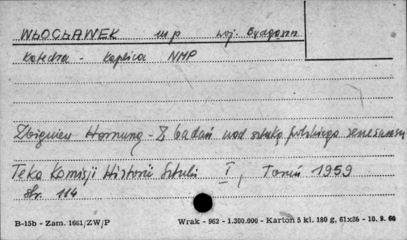 WŁOCŁAWEK m p woj. Bydgoszcz
Katedra - Kaplica NMP
Zbigniew Hornung - Z badań nad sztuką polskiego renesansu
Teka Komisji Historii Sztuki I, Toruń 1959
Str. 114
B-15b - Zam. 1661/ZW/P Wrak - 962 - 1.300.000 - Karton 5 kl. 180 g, 61x26 - 10. 9. 66